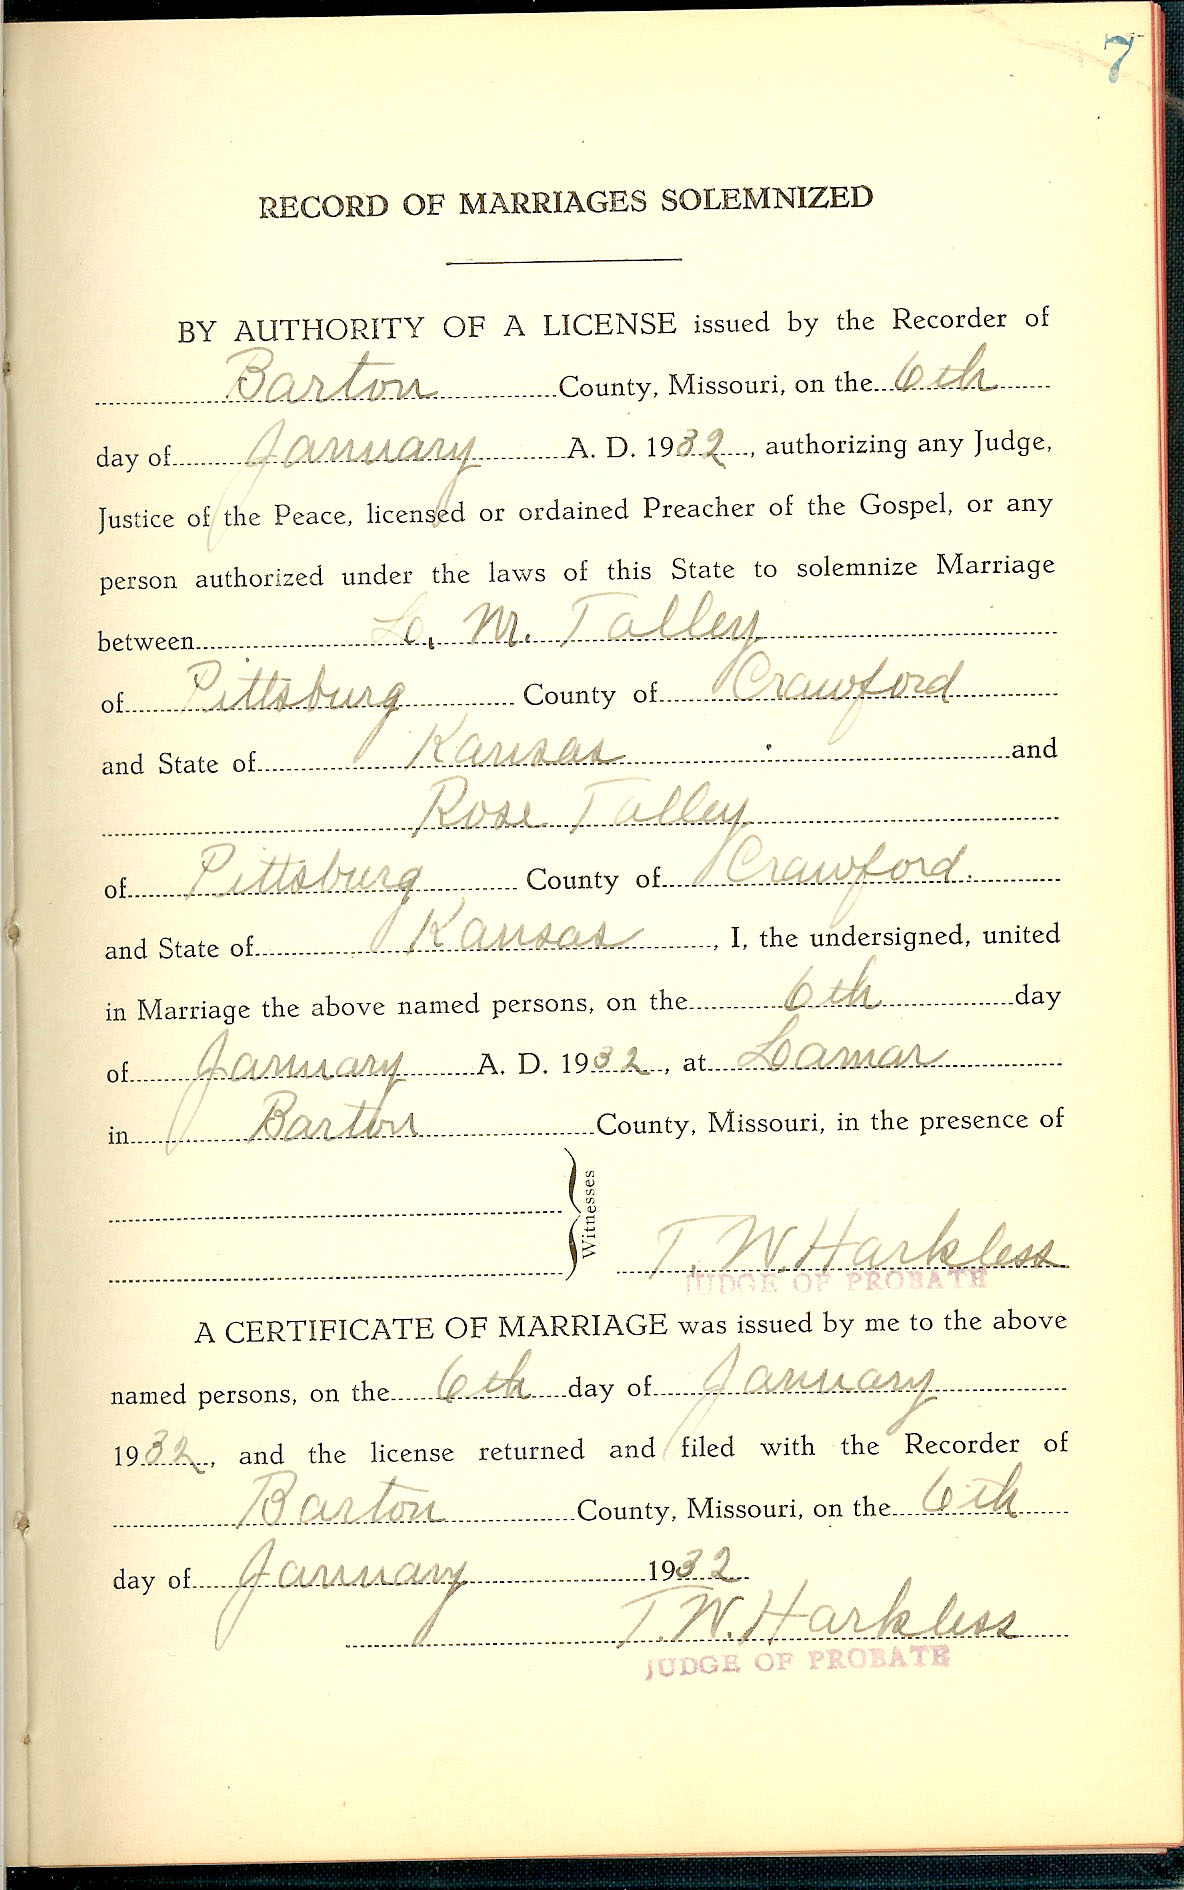 7
RECORD OF MARRIAGES SOLEMNIZED
BY AUTHORITY OF A LICENSE issued by the Recorder of
Barton County, Missouri, on the 6th
day of January A. D. 1932, authorizing any Judge,
Justice of the Peace, licensed or ordained Preacher of the Gospel, or any
person authorized under the laws of this State to solemnize Marriage
between L. M. Talley
of Pittsburg County of Crawford
and State of Kansas and
Rose Talley
of Pittsburg County of Crawford.
and State of Kansas, I, the undersigned, united
in Marriage the above named persons, on the 6th day
of January A. D. 1932, at Lamar
in Barton County, Missouri, in the presence of
Witnesses
T. W. Harkless
JUDGE OF PROBATE
A CERTIFICATE OF MARRIAGE was issued by me to the above
named persons, on the 6th day of January
1932, and the license returned and filed with the Recorder of
Barton County, Missouri, on the 6th
day of January 1932
T. W. Harkless
JUDGE OF PROBATE